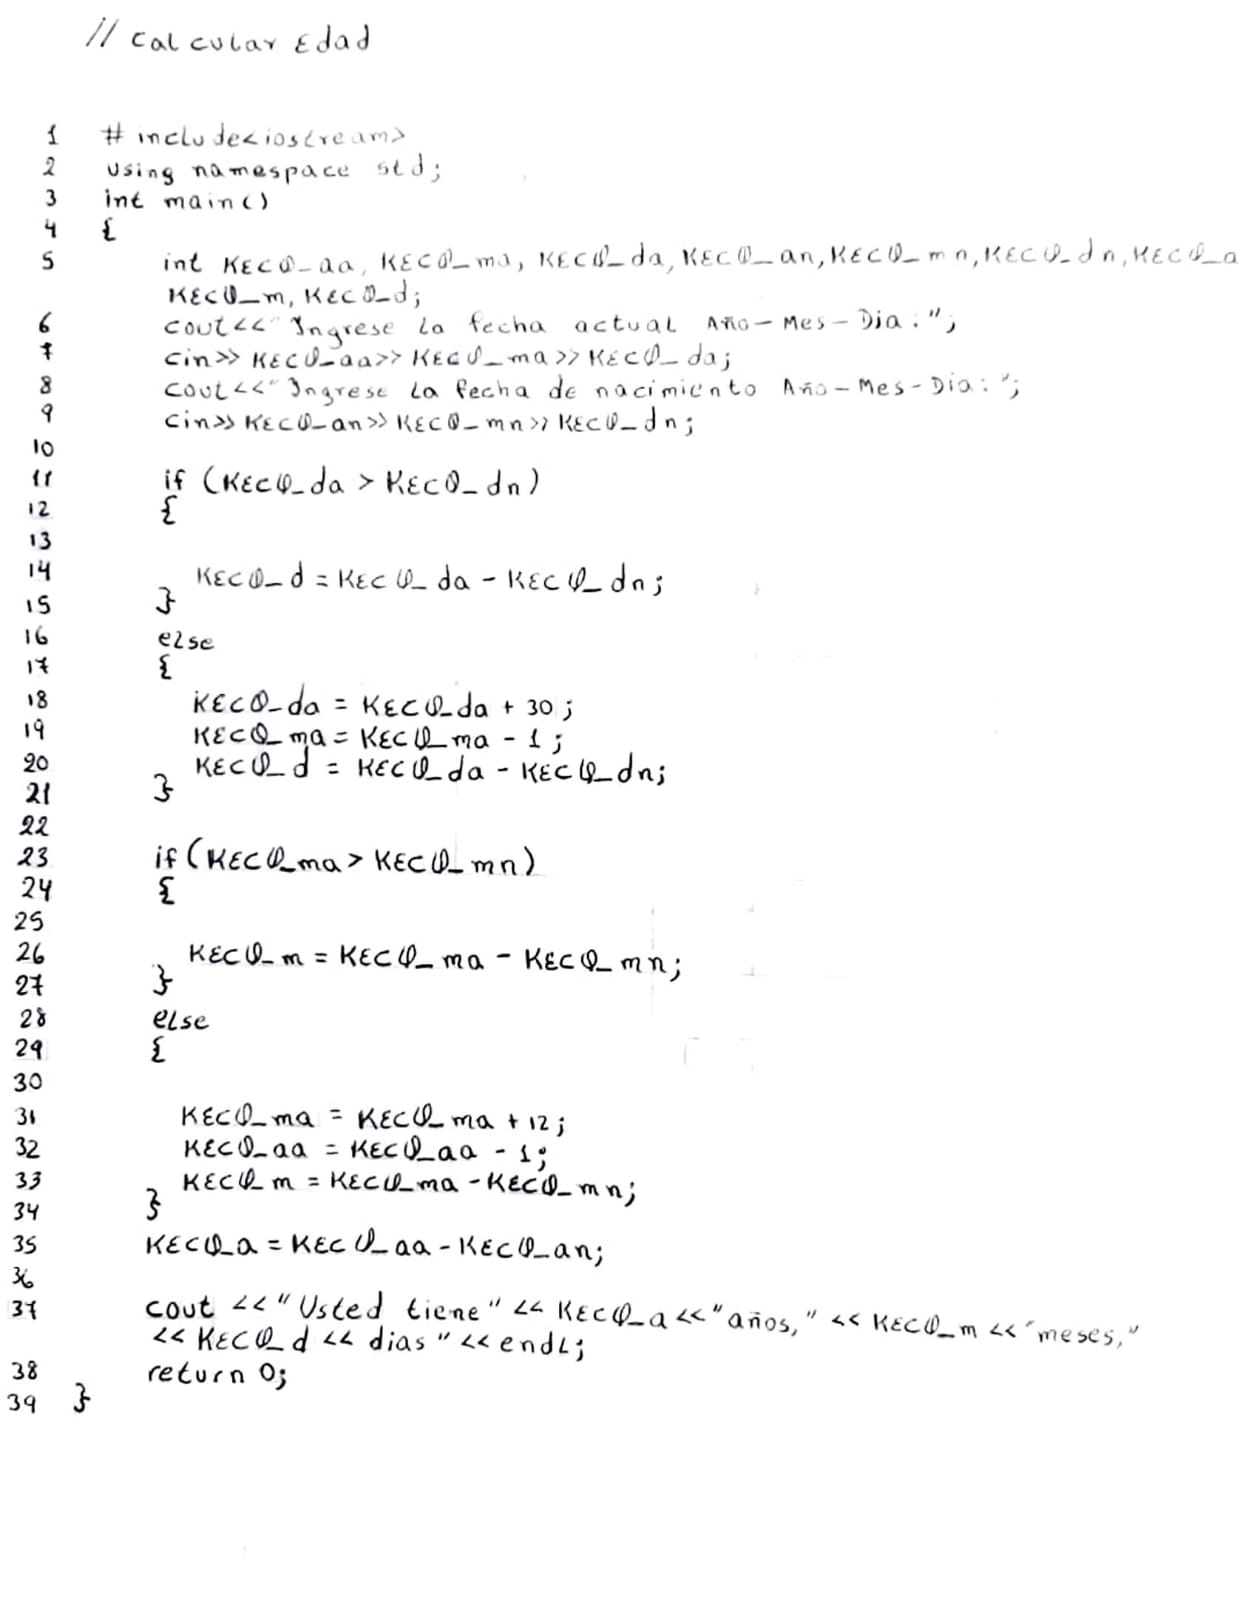 // Calcular Edad
1 #include<iostream>
2 using namespace std;
3 int main()
4 {
5 int KECQ_aa, KECQ_ma, KECQ_da, KECQ_an, KECQ_mn, KECQ_dn, KECQ_a
KECQ_m, KECQ_d;
6 cout<<"Ingrese la fecha actual Año-Mes-Dia:";
7 cin>> KECQ_aa>> KECQ_ma>> KECQ_da;
8 cout<<"Ingrese la fecha de nacimiento Año-Mes-Dia:";
9 cin>> KECQ_an>> KECQ_mn>> KECQ_dn;
10
11 if (KECQ_da > KECQ_dn)
12 {
13
14 KECQ_d = KECQ_da - KECQ_dn;
15 }
16 else
17 {
18 KECQ_da = KECQ_da + 30;
19 KECQ_ma = KECQ_ma - 1;
20 KECQ_d = KECQ_da - KECQ_dn;
21 }
22
23 if (KECQ_ma > KECQ_mn)
24 {
25
26 KECQ_m = KECQ_ma - KECQ_mn;
27 }
28 else
29 {
30
31 KECQ_ma = KECQ_ma + 12;
32 KECQ_aa = KECQ_aa - 1;
33 KECQ_m = KECQ_ma - KECQ_mn;
34 }
35 KECQ_a = KECQ_aa - KECQ_an;
36
37 cout <<"Usted tiene" << KECQ_a <<"años," << KECQ_m <<"meses,"
<< KECQ_d << dias" << endl;
38 return 0;
39 }